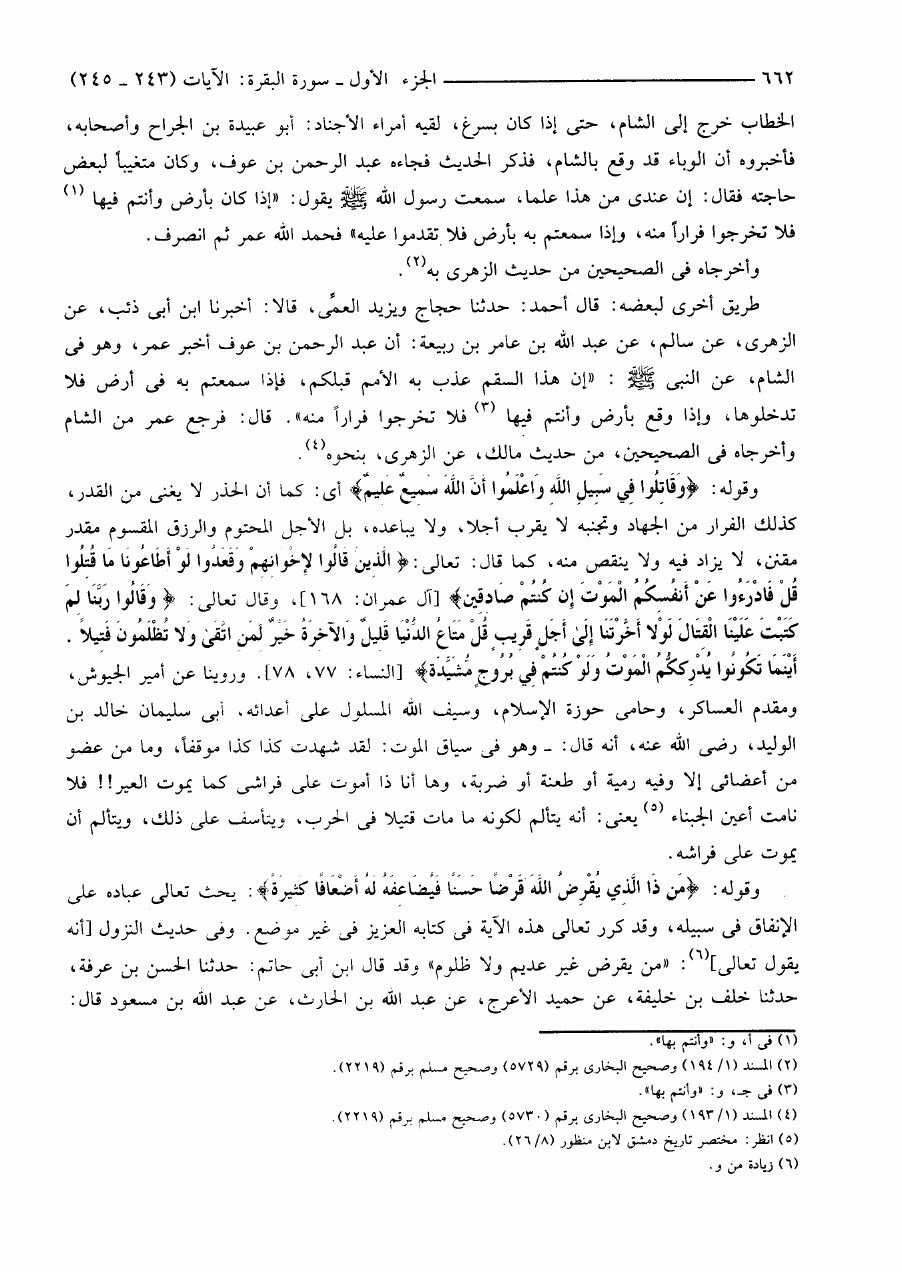 ٦٦٢ ــــــــــــــــــــــــــــــــــــــــ الجزء الأول ـ سورة البقرة: الآيات (٢٤٣ ـ ٢٤٥)
الخطاب خرج إلى الشام، حتى إذا كان بسرغ، لقيه أمراء الأجناد: أبو عبيدة بن الجراح وأصحابه،
فأخبروه أن الوباء قد وقع بالشام، فذكر الحديث فجاءه عبد الرحمن بن عوف، وكان متغيباً لبعض
حاجته فقال: إن عندى من هذا علما، سمعت رسول الله ﷺ يقول: «إذا كان بأرض وأنتم فيها (١)
فلا تخرجوا فراراً منه، وإذا سمعتم به بأرض فلا تقدموا عليه» فحمد الله عمر ثم انصرف.
وأخرجاه فى الصحيحين من حديث الزهرى به(٢).
طريق أخرى لبعضه: قال أحمد: حدثنا حجاج ويزيد العمِّى، قالا: أخبرنا ابن أبى ذئب، عن
الزهرى، عن سالم، عن عبد الله بن عامر بن ربيعة: أن عبد الرحمن بن عوف أخبر عمر، وهو فى
الشام، عن النبى ﷺ : «إن هذا السقم عذب به الأمم قبلكم، فإذا سمعتم به فى أرض فلا
تدخلوها، وإذا وقع بأرض وأنتم فيها (٣) فلا تخرجوا فراراً منه». قال: فرجع عمر من الشام
وأخرجاه فى الصحيحين، من حديث مالك، عن الزهرى، بنحوه(٤).
وقوله: ﴿وَقَاتِلُوا فِي سَبِيلِ اللَّهِ وَاعْلَمُوا أَنَّ اللَّهَ سَمِيعٌ عَلِيمٌ﴾ أى: كما أن الحذر لا يغنى من القدر،
كذلك الفرار من الجهاد وتجنبه لا يقرب أجلا، ولا يباعده، بل الأجل المحتوم والرزق المقسوم مقدر
مقنن، لا يزاد فيه ولا ينقص منه، كما قال: تعالى:﴿ الَّذِينَ قَالُوا لِإِخْوَانِهِمْ وَقَعَدُوا لَوْ أَطَاعُونَا مَا قُتِلُوا
قُلْ فَادْرَءُوا عَنْ أَنفُسِكُمُ الْمَوْتَ إِن كُنتُمْ صَادِقِينَ﴾ [آل عمران: ١٦٨]، وقال تعالى: ﴿ وَقَالُوا رَبَّنَا لِمَ
كَتَبْتَ عَلَيْنَا الْقِتَالَ لَوْلا أَخَّرْتَنَا إِلَىٰ أَجَلٍ قَرِيبٍ قُلْ مَتَاعُ الدُّنْيَا قَلِيلٌ وَالآخِرَةُ خَيْرٌ لِّمَنِ اتَّقَىٰ وَلا تُظْلَمُونَ فَتِيلاً .
أَيْنَمَا تَكُونُوا يُدْرِككُّمُ الْمَوْتُ وَلَوْ كُنتُمْ فِي بُرُوجٍ مُّشَيَّدَةٍ﴾ [النساء: ٧٧، ٧٨]. وروينا عن أمير الجيوش،
ومقدم العساكر، وحامى حوزة الإسلام، وسيف الله المسلول على أعدائه، أبى سليمان خالد بن
الوليد، رضى الله عنه، أنه قال: ـ وهو فى سياق الموت: لقد شهدت كذا كذا موقفاً، وما من عضو
من أعضائى إلا وفيه رمية أو طعنة أو ضربة، وها أنا ذا أموت على فراشى كما يموت العير!! فلا
نامت أعين الجبناء (٥) يعنى: أنه يتألم لكونه ما مات قتيلا فى الحرب، ويتأسف على ذلك، ويتألم أن
يموت على فراشه.
وقوله: ﴿مَن ذَا الَّذِي يُقْرِضُ اللَّهَ قَرْضًا حَسَنًا فَيُضَاعِفَهُ لَهُ أَضْعَافًا كَثِيرَةً﴾: يحث تعالى عباده على
الإنفاق فى سبيله، وقد كرر تعالى هذه الآية فى كتابه العزيز فى غير موضع. وفى حديث النزول [أنه
يقول تعالى](٦): «من يقرض غير عديم ولا ظلوم» وقد قال ابن أبى حاتم: حدثنا الحسن بن عرفة،
حدثنا خلف بن خليفة، عن حميد الأعرج، عن عبد الله بن الحارث، عن عبد الله بن مسعود قال:
(١) فى أ، و: «وأنتم بها».
(٢) المسند (١/ ١٩٤) وصحيح البخارى برقم (٥٧٢٩) وصحيح مسلم برقم (٢٢١٩).
(٣) فى جـ، و: «وأنتم بها».
(٤) المسند (١/ ١٩٣) وصحيح البخارى برقم (٥٧٣٠) وصحيح مسلم برقم (٢٢١٩).
(٥) انظر: مختصر تاريخ دمشق لابن منظور (٨/ ٢٦).
(٦) زيادة من و.